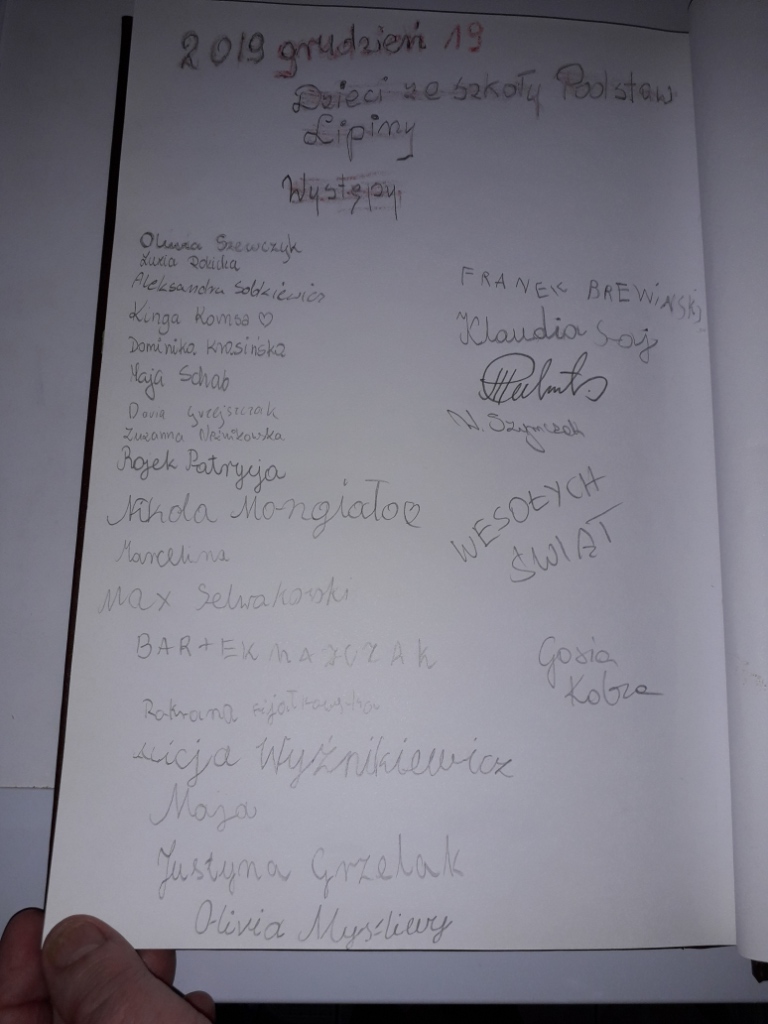 2019 grudzień 19
Dzieci ze szkoły Podstaw
Lipiny
Występy
Szewczyk
Zuzia
Aleksandra Sobkiewicz
Kinga Komsa ♡
Dominika Krasińska
Maja Schab
Daria
Zuzanna
Rojek Patrycja
Nikola Mongiało ♡
Marcelina
Max Selwakowski
BARTEK
Roksana
Wyźnikiewicz
Maja
Justyna Grzelak
Olivia Myśliwy
FRANEK BREWIŃSKI
Klaudia Soj
N. Szymczak
WESOŁYCH
ŚWIĄT
Gosia
Kobza